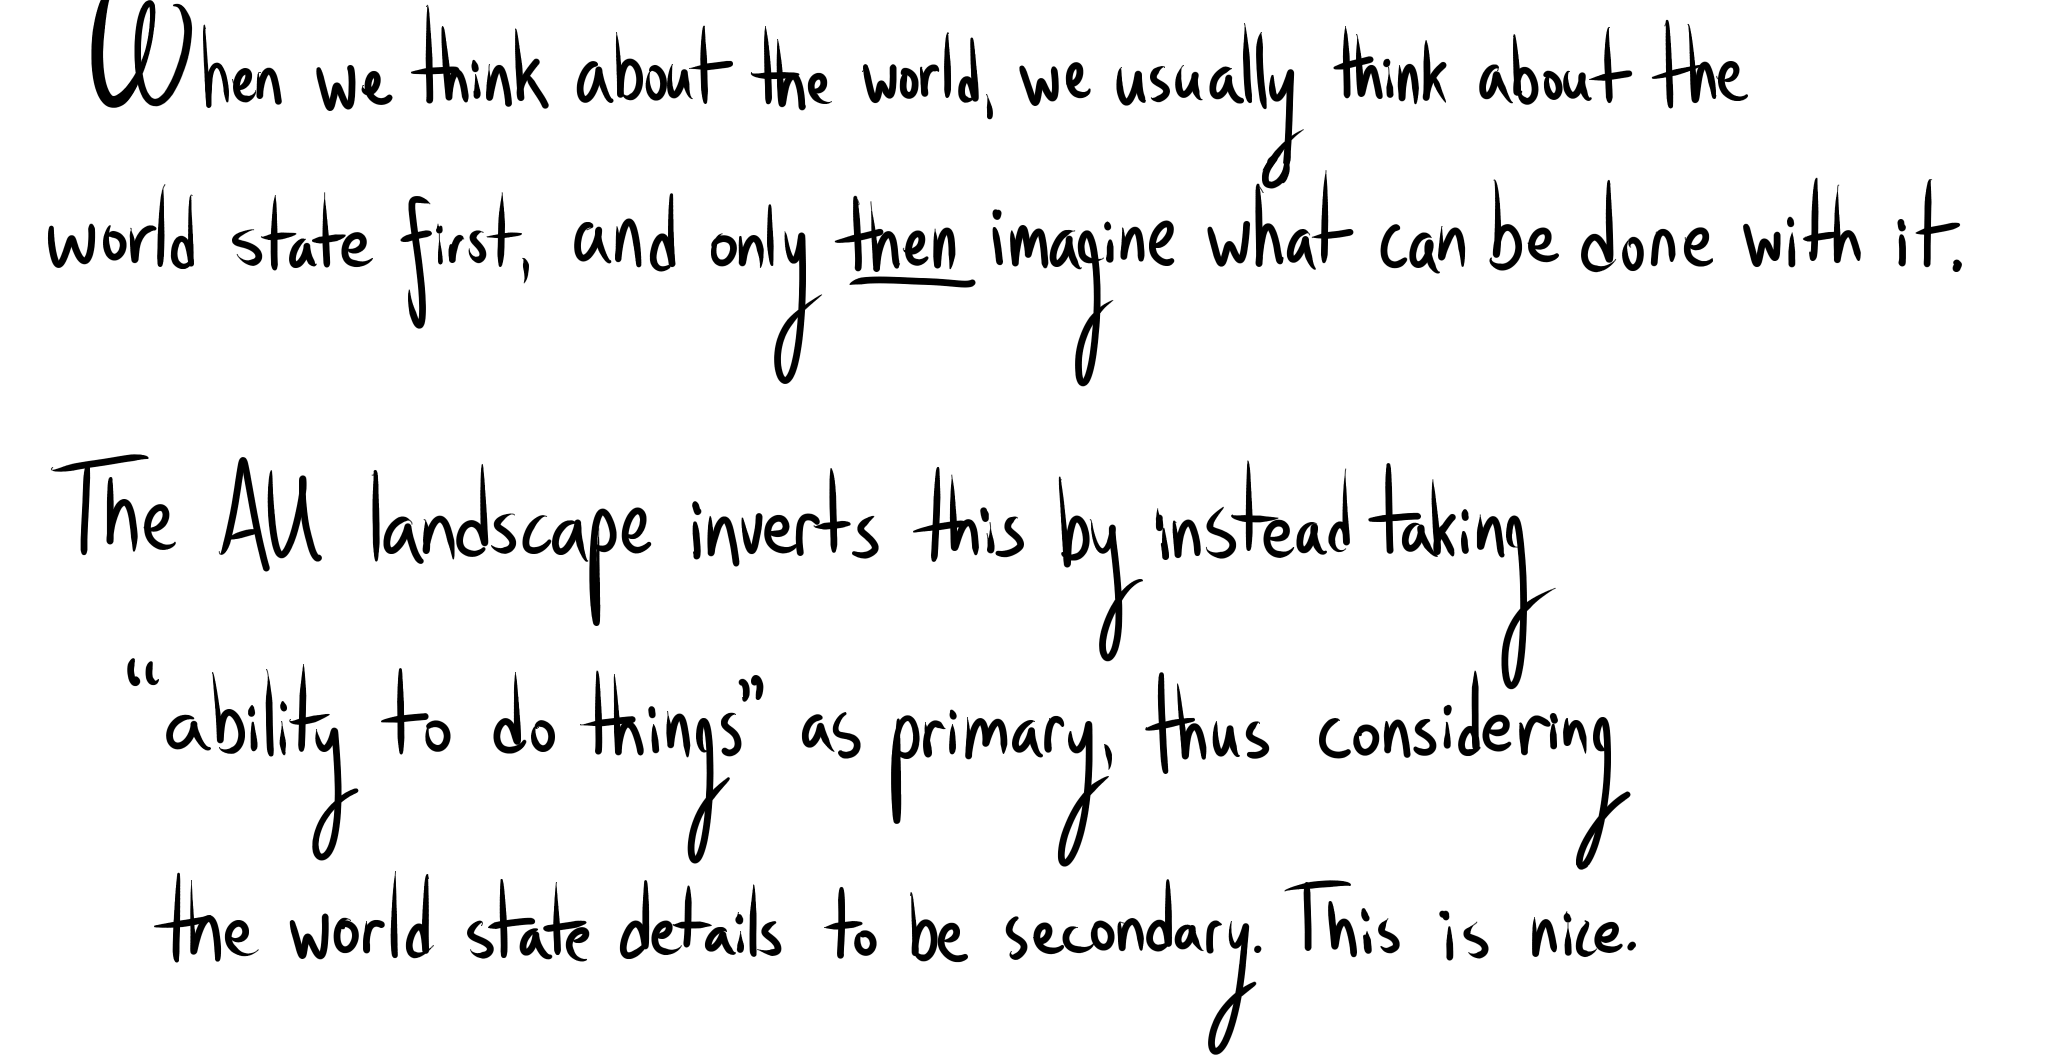 When we think about the world, we usually think about the
world state first, and only then imagine what can be done with it.
The AU landscape inverts this by instead taking
“ability to do things” as primary, thus considering
the world state details to be secondary. This is nice.